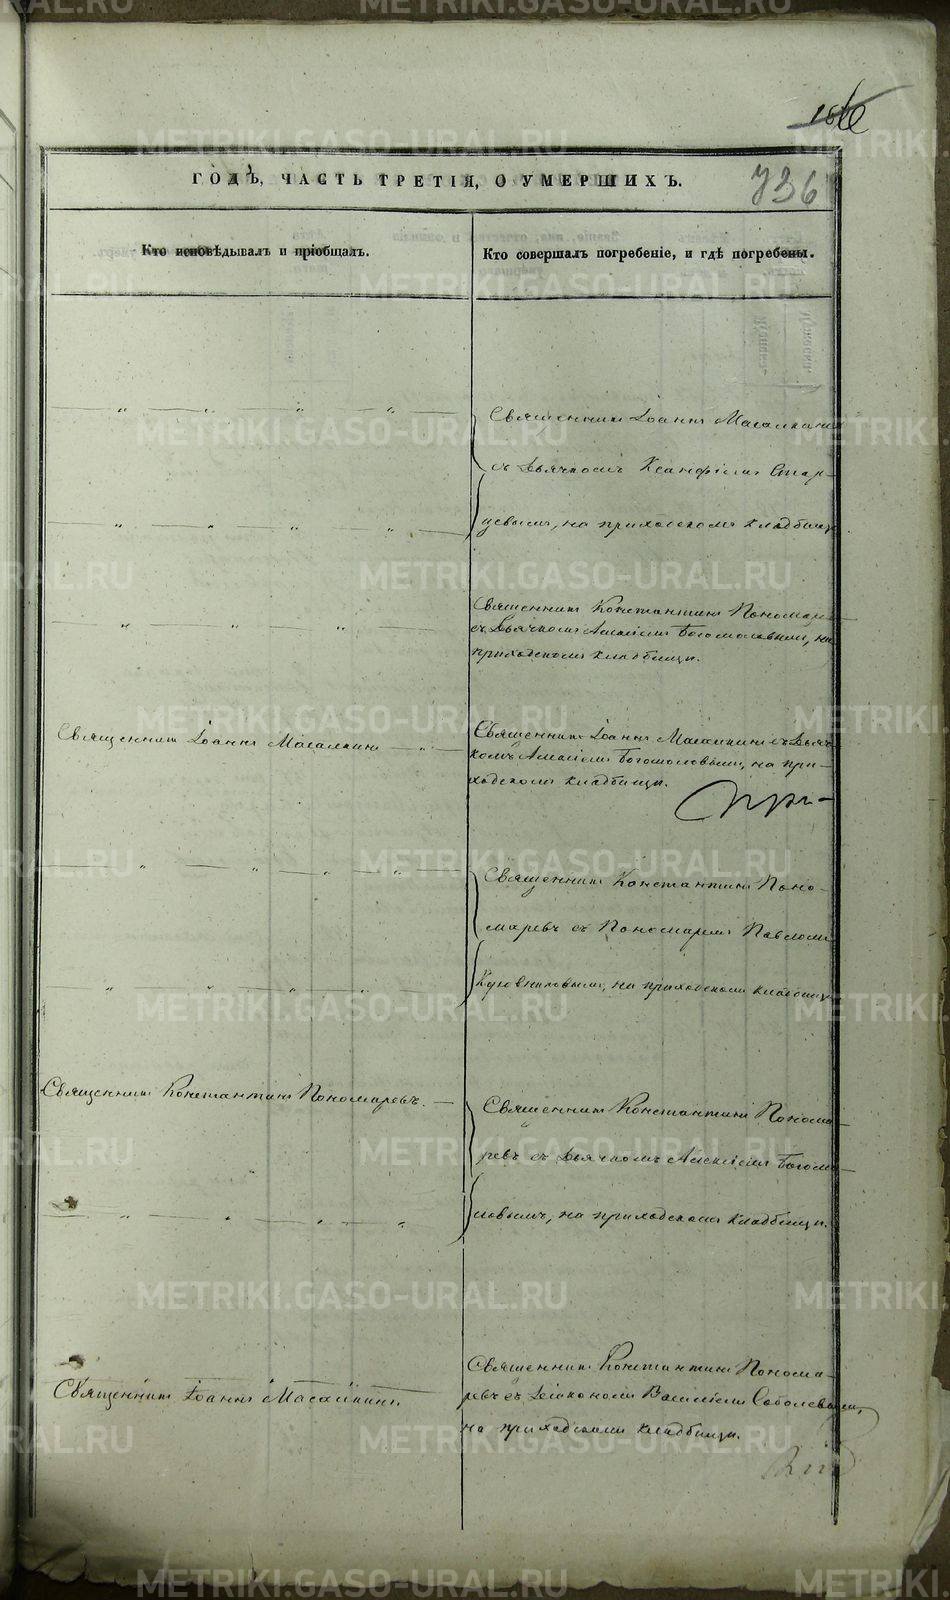 736
ГОДЪ, ЧАСТЬ ТРЕТІЯ, О УМЕРШИХЪ.
Кто исповѣдывалъ и пріобщалъ.
Кто совершалъ погребеніе, и гдѣ погребены.
Священникъ Іоаннъ Масалкинъ
съ Дьячкомъ Ксанфіемъ Стар-
цевымъ, на приходскомъ кладбищѣ
Священникъ Константинъ Пономаре-
съ Дьячкомъ Алексіемъ Богомоловымъ, на
приходскомъ кладбищѣ.
Священникъ Іоаннъ Масалкинъ
Священникъ Іоаннъ Масалкинъ съ Дьяч-
комъ Алексіемъ Богомоловымъ, на при-
ходскомъ кладбищѣ.
При-
Священникъ Константинъ Поно-
маревъ съ Пономаремъ Павломъ
на приходскомъ кладбищѣ
Священникъ Константинъ Пономаревъ.
Священникъ Константинъ Понома-
ревъ съ Дьячкомъ Алексіемъ Богомо-
ловымъ, на приходскомъ кладбищѣ.
Священникъ Іоаннъ Масалкинъ
Священникъ Константинъ Понома-
ревъ съ Діакономъ Василіемъ Соболевымъ,
на приходскомъ кладбищѣ.
METRIKI.GASO-URAL.RU